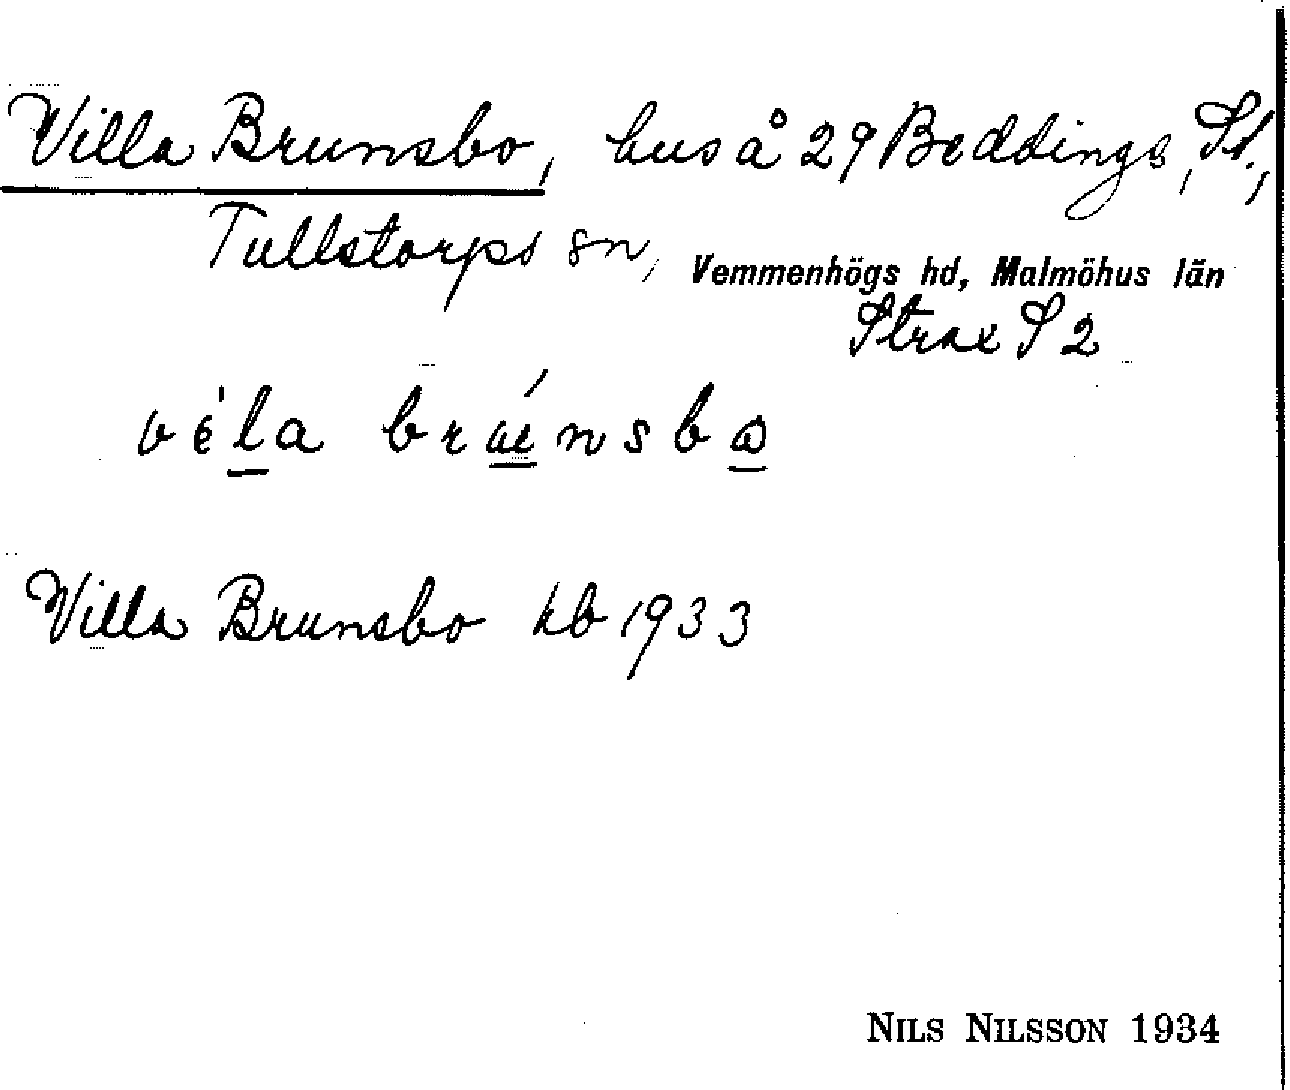 Villa Brunsbo, hus å 29 Beddinge, St.,
Tullstorps sn, Vemmenhögs hd, Malmöhus län
Strax S 2
Villa Brunsbo kb 1933
NILS NILSSON 1934